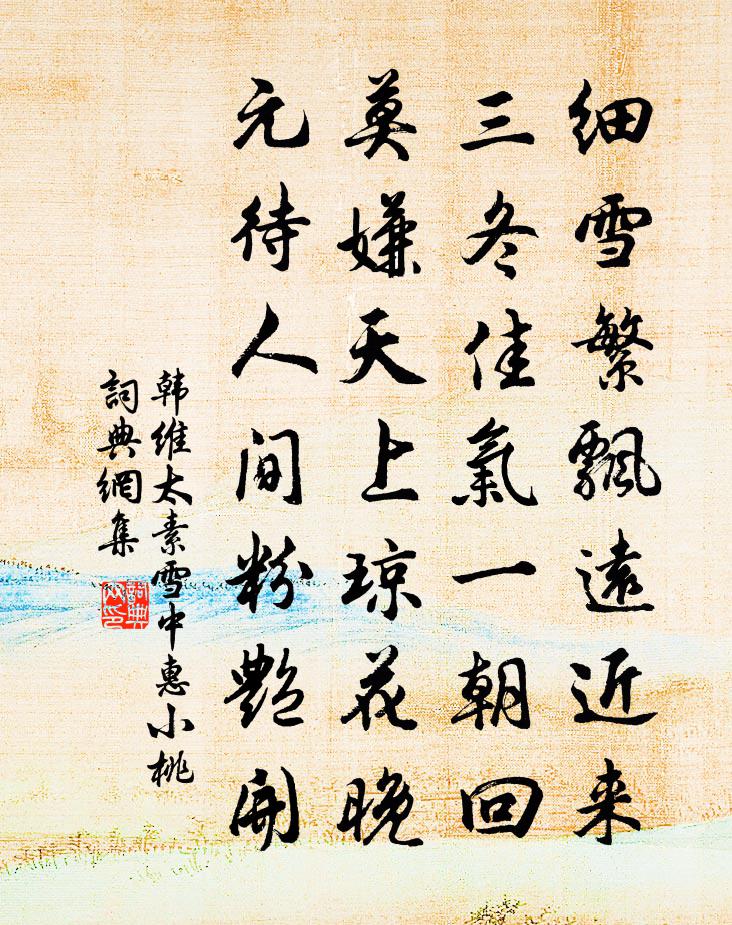 细雪繁飄遠近来
三冬佳氣一朝回
莫嫌天上琼花晚
元待人间粉艶開
韩维太素雪中惠小桃
詞典網集